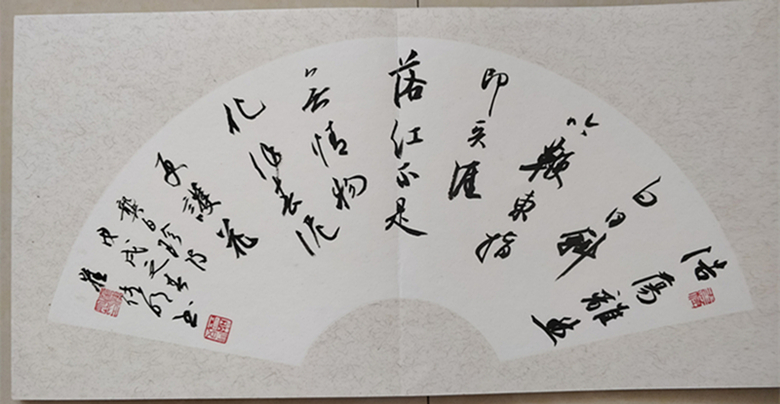 浩蕩離愁
白日斜
吟鞭東指
即天涯
落红不是
無情物
化作春泥
更護花
龔自珍诗